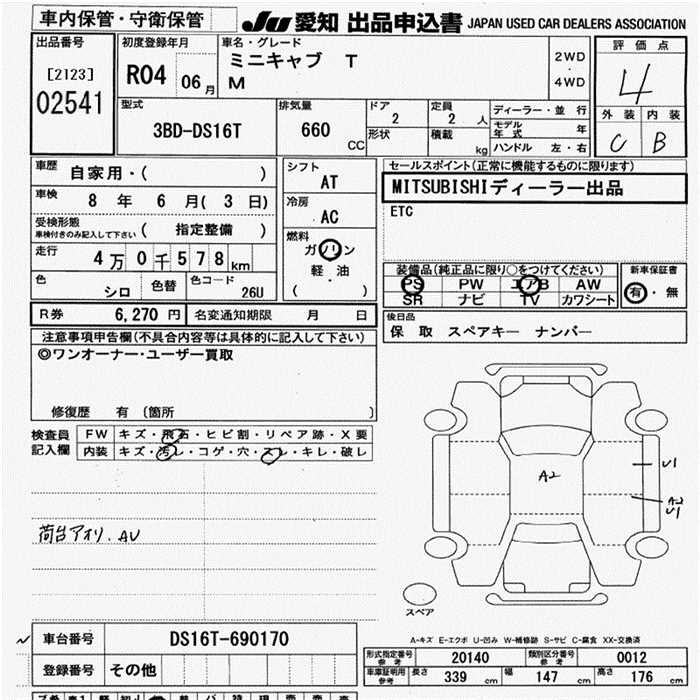 車内保管・守衛保管
JU 愛知 出品申込書 JAPAN USED CAR DEALERS ASSOCIATION
出品番号
[2123]
02541
初度登録年月
R04 06月
車名・グレード
ミニキャブ T
M
2WD
・
4WD
評価点
4
外装 内装
C B
型式
3BD-DS16T
排気量
660
CC
ドア
2
定員
2 人
形状
積載
kg
ディーラー・並行
モデル年式 年
ハンドル 左・右
車歴
自家用・( )
車検
8 年 6 月( 3 日)
受検形態
車検付きのみ記入して下さい ( 指定整備 )
走行
4万0千578km
色
シロ
色替
色コード
26U
シフト
AT
冷房
AC
燃料
ガソリン
軽・油
( )
セールスポイント(正常に機能するものに限ります)
MITSUBISHIディーラー出品
ETC
装備品(純正品に限り○をつけてください)
PS PW エアB AW
SR ナビ TV カワシート
新車保証書
有・無
R券 6,270 円 名変通知期限 月 日
後日品
保 取 スペアキー ナンバー
注意事項申告欄(不具合内容等は具体的に記入して下さい)
◎ワンオーナー・ユーザー買取
修復歴 有 〔箇所 〕
検査員
記入欄
FW キズ・飛石・ヒビ割・リペア跡・X要
内装 キズ・汚レ・コゲ・穴・スレ・キレ・破レ
荷台アオリ、AU
A2
U1
A2
U1
スペア
A-キズ E-エクボ U-凹み W-補修跡 S-サビ C-腐食 XX-交換済
車台番号 DS16T-690170
登録番号 その他
形式指定番号
参考
20140
類別区分番号
参考
0012
車庫証明用
参考
長さ 339 cm 幅 147 cm 高さ 176 cm